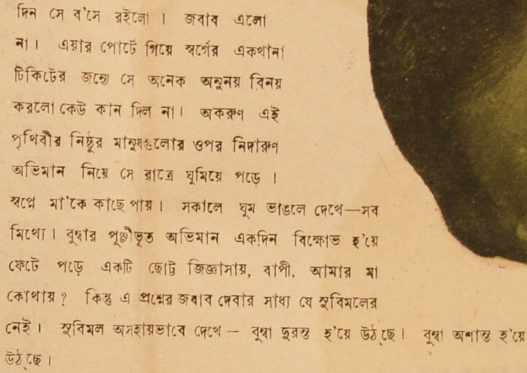 দিন সে ব'সে রইলো । জবাব এলো
না । এয়ার পোর্টে গিয়ে স্বর্গের একখানা
টিকিটের জন্যে সে অনেক অনুনয় বিনয়
করলো কেউ কান দিল না । অকরুণ এই
পৃথিবীর নিষ্ঠুর মানুষগুলোর ওপর নিদারুণ
অভিমান নিয়ে সে রাত্রে ঘুমিয়ে পড়ে ।
স্বপ্নে মা'কে কাছে পায় । সকালে ঘুম ভাঙলে দেখে—সব
মিথ্যে । বুম্বার পুঞ্জীভূত অভিমান একদিন বিক্ষোভ হ'য়ে
ফেটে পড়ে একটি ছোট্ট জিজ্ঞাসায়, বাপী, আমার মা
কোথায় ? কিন্তু এ প্রশ্নের জবাব দেবার সাধ্য যে সুবিমলের
নেই । সুবিমল অসহায়ভাবে দেখে — বুম্বা দুরন্ত হ'য়ে উঠছে । বুম্বা অশান্ত হ'য়ে
উঠছে ।